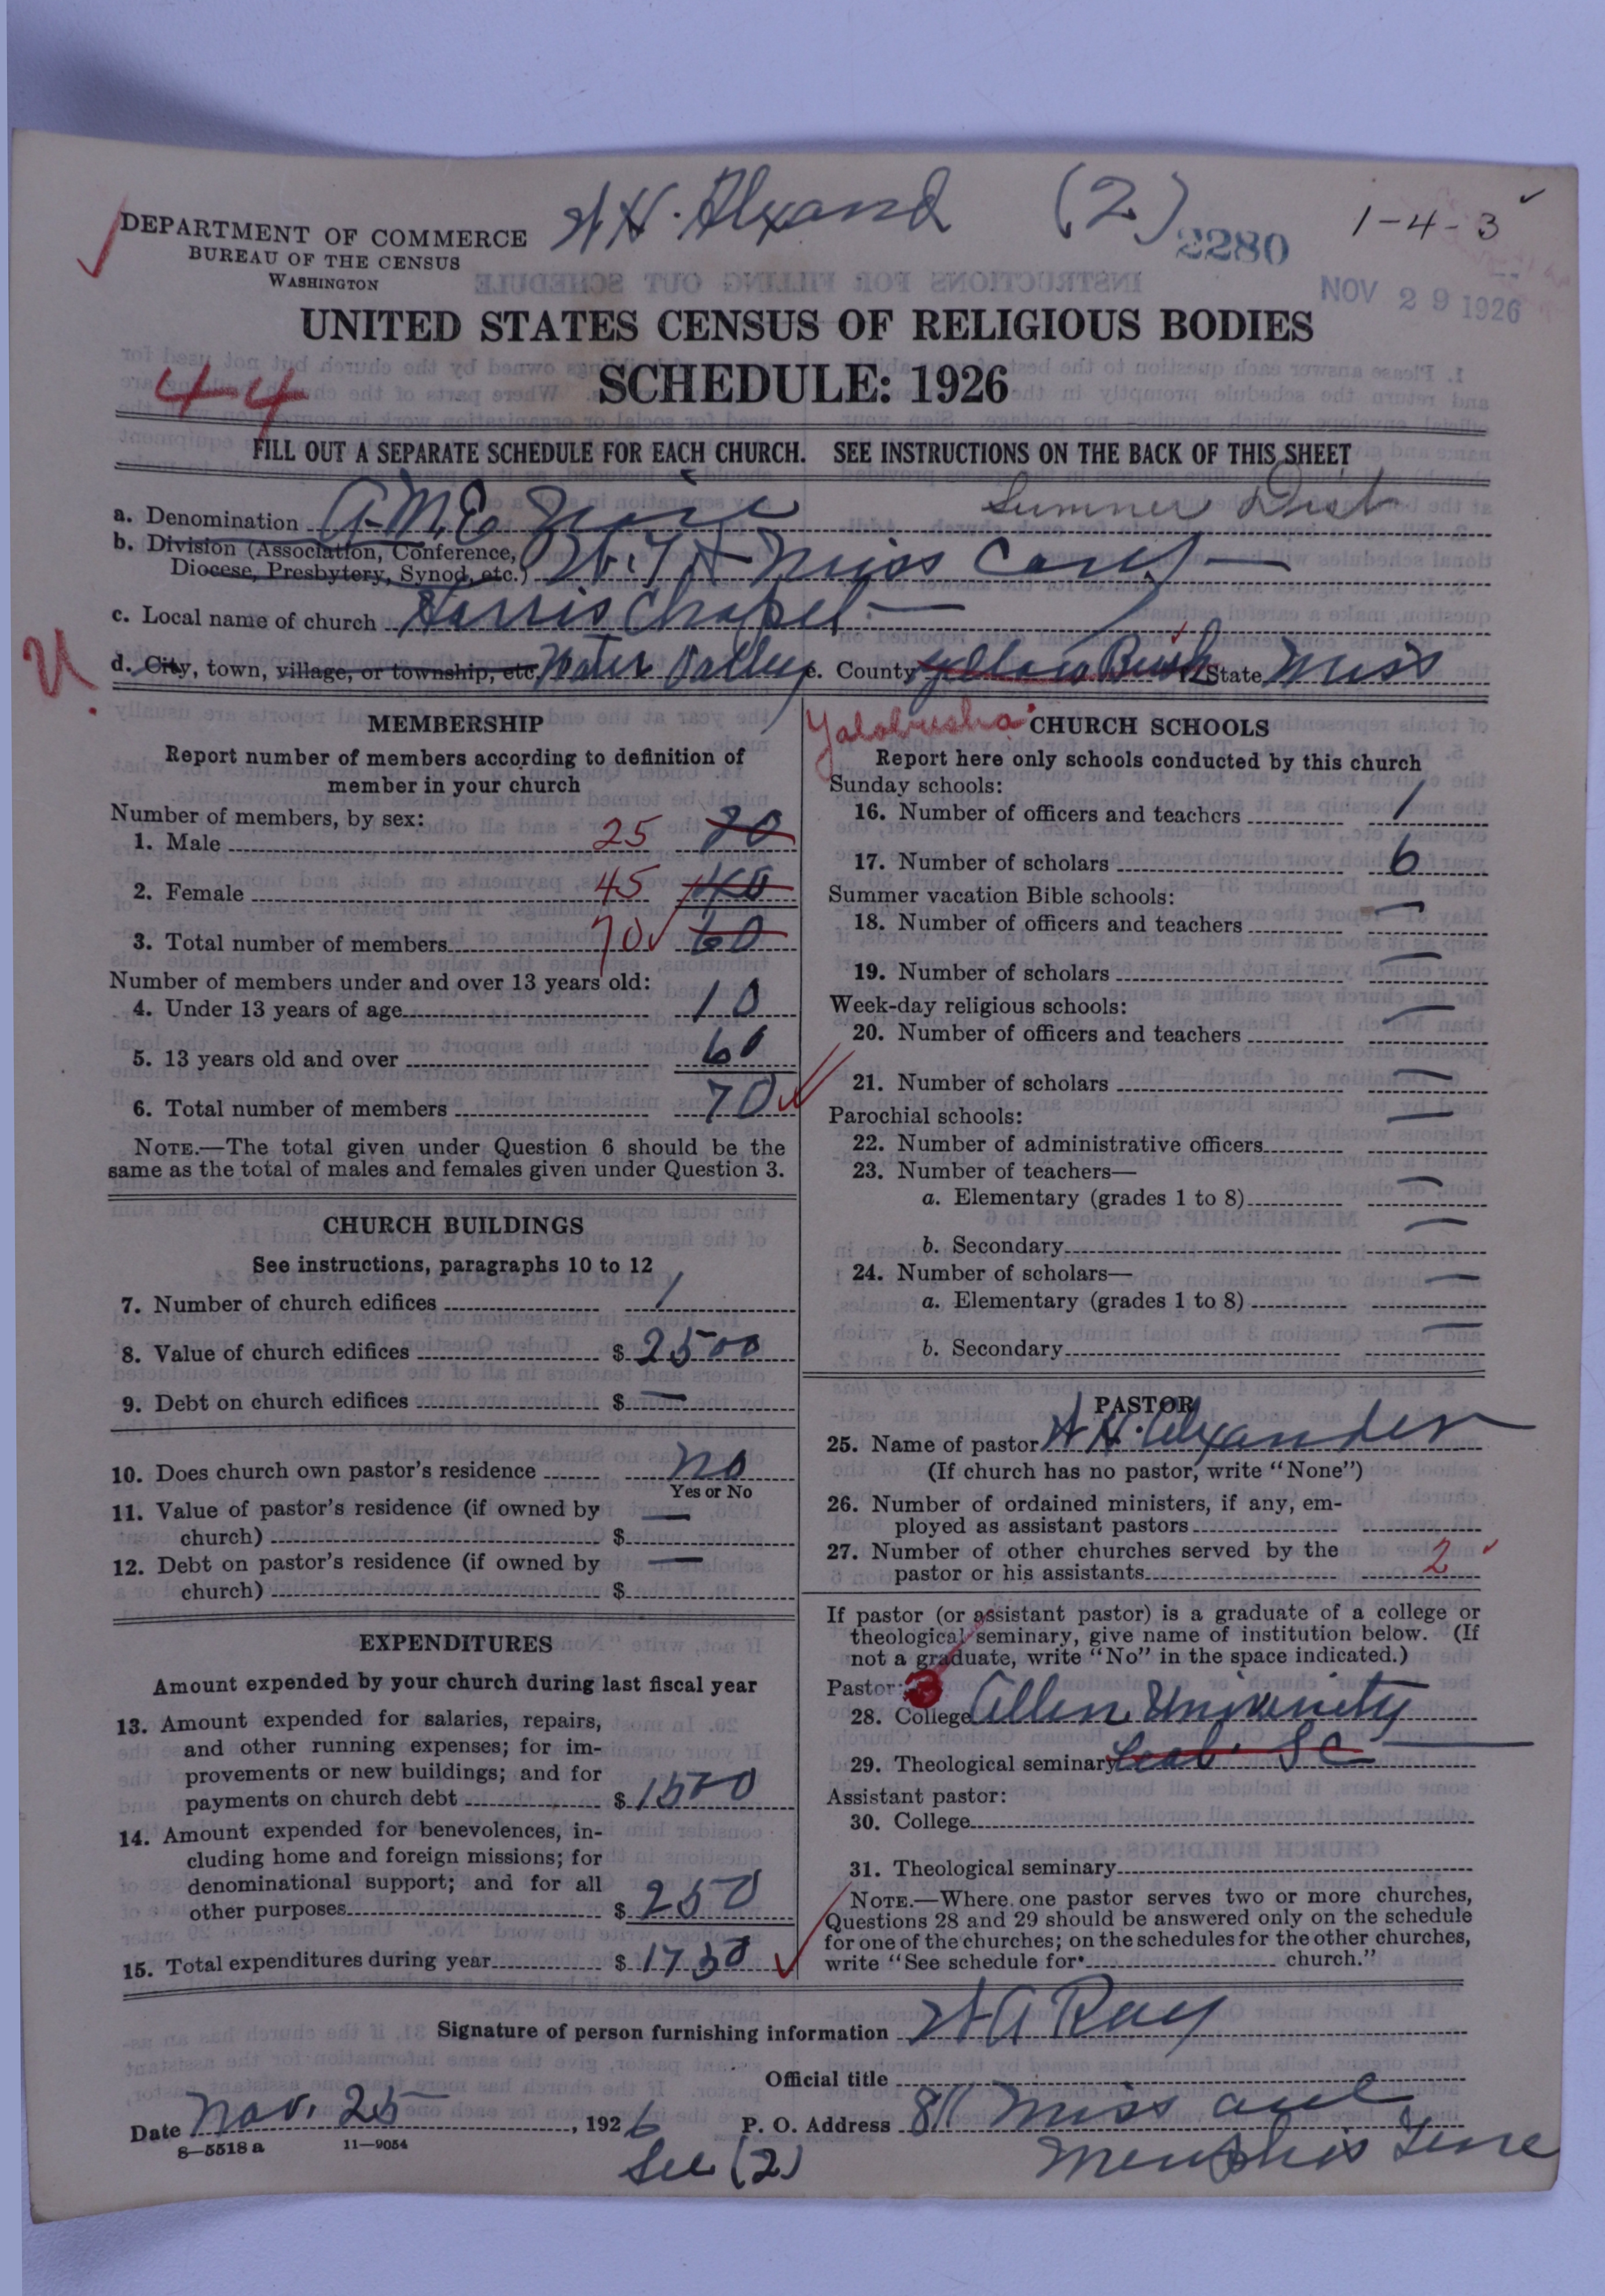 A H. Alxand (2) 2280 1-4-3
DEPARTMENT OF COMMERCE
BUREAU OF THE CENSUS
WASHINGTON
NOV 29 1926
UNITED STATES CENSUS OF RELIGIOUS BODIES
4-4
SCHEDULE: 1926
FILL OUT A SEPARATE SCHEDULE FOR EACH CHURCH. SEE INSTRUCTIONS ON THE BACK OF THIS SHEET
Sumner Dist
a. Denomination A.M.E. Zion
b. Division (Association, Conference,
Diocese, Presbytery, Synod, etc.) Miss Conf
c. Local name of church Harris Chapel
U. d. City, town, village, or township, etc. Water Valley e. County Yellow Bush f. State Miss
Yalobusha
MEMBERSHIP
Report number of members according to definition of
member in your church
Number of members, by sex:
1. Male 25 20
2. Female 45 40
3. Total number of members 70 60
Number of members under and over 13 years old:
4. Under 13 years of age 10
5. 13 years old and over 60
6. Total number of members 70
NOTE.—The total given under Question 6 should be the
same as the total of males and females given under Question 3.
CHURCH BUILDINGS
See instructions, paragraphs 10 to 12
7. Number of church edifices 1
8. Value of church edifices $ 2500
9. Debt on church edifices $ —
10. Does church own pastor's residence no
Yes or No
11. Value of pastor's residence (if owned by
church) $ —
12. Debt on pastor's residence (if owned by
church) $ —
EXPENDITURES
Amount expended by your church during last fiscal year
13. Amount expended for salaries, repairs,
and other running expenses; for im-
provements or new buildings; and for
payments on church debt $ 1500
14. Amount expended for benevolences, in-
cluding home and foreign missions; for
denominational support; and for all
other purposes $ 250
15. Total expenditures during year $ 1750
CHURCH SCHOOLS
Report here only schools conducted by this church
Sunday schools:
16. Number of officers and teachers 1
17. Number of scholars 6
Summer vacation Bible schools:
18. Number of officers and teachers —
19. Number of scholars —
Week-day religious schools:
20. Number of officers and teachers —
21. Number of scholars —
Parochial schools:
22. Number of administrative officers —
23. Number of teachers—
a. Elementary (grades 1 to 8) —
b. Secondary —
24. Number of scholars—
a. Elementary (grades 1 to 8) —
b. Secondary —
PASTOR
25. Name of pastor A H. Alexander
(If church has no pastor, write "None")
26. Number of ordained ministers, if any, em-
ployed as assistant pastors
27. Number of other churches served by the
pastor or his assistants 2
If pastor (or assistant pastor) is a graduate of a college or
theological seminary, give name of institution below. (If
not a graduate, write "No" in the space indicated.)
Pastor:
28. College Allen University
29. Theological seminary S C
Assistant pastor:
30. College
31. Theological seminary
NOTE.—Where one pastor serves two or more churches,
Questions 28 and 29 should be answered only on the schedule
for one of the churches; on the schedules for the other churches,
write "See schedule for church."
Signature of person furnishing information A A Ray
Official title
Date Nov. 25, 1926 P. O. Address 811 Miss ave
8—5518 a 11—9054
See (2) Memphis Tenne